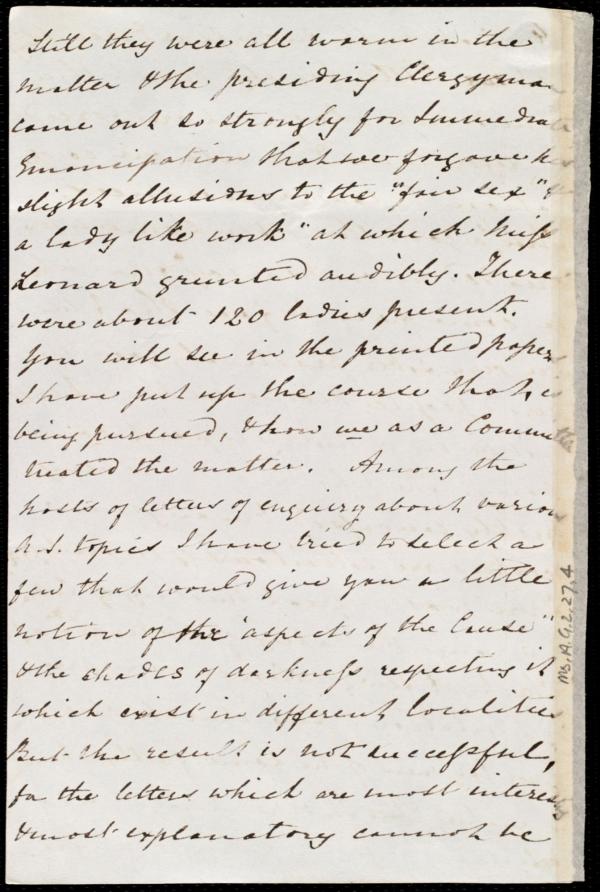 Still they were all warm in the
matter & the presiding Clergyman
came out so strongly for Immediate
Emancipation that we forgave his
slight allusions to the "fair sex" &
a lady like work" at which Miss
Leonard grunted audibly. There
were about 120 ladies present.
You will see in the printed papers
I have put up the course that is
being pursued, & how we as a Committee
treated the matter. Among the
hosts of letters of enquiry about various
A.S. topics I have tried to select a
few that would give you a little
notion of the "aspects of the Cause"
& the shades of darkness respecting it
which exist in different localities
But the result is not successful,
for the letters which are most interesting
& most explanatory cannot be
Ms.A.9.2.27.4